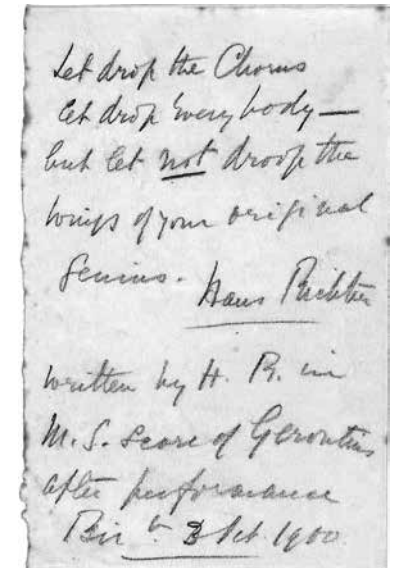 Let drop the Chorus
let drop everybody—
but let not droop the
wings of your original
genius.
Hans Richter
written by H. R. in
M.S. Score of Gerontius
after performance
Birm 3 Oct 1900